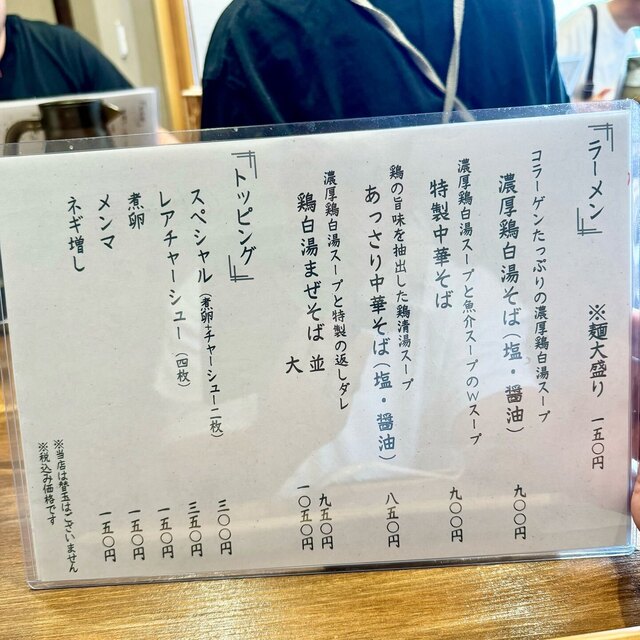 『ラーメン』 ※麺大盛り 一五〇円
コラーゲンたっぷりの濃厚鶏白湯スープ
濃厚鶏白湯そば(塩・醤油) 九〇〇円
濃厚鶏白湯スープと魚介スープのWスープ
特製中華そば 九〇〇円
鶏の旨味を抽出した鶏清湯スープ
あっさり中華そば(塩・醤油) 八五〇円
濃厚鶏白湯スープと特製の返しダレ
鶏白湯まぜそば 並 九五〇円
大 一〇五〇円
『トッピング』
スペシャル(煮卵+チャーシュー二枚) 三〇〇円
レアチャーシュー(四枚) 三五〇円
煮卵 一五〇円
メンマ 一五〇円
ネギ増し 一五〇円
※当店は替玉はございません
※税込み価格です